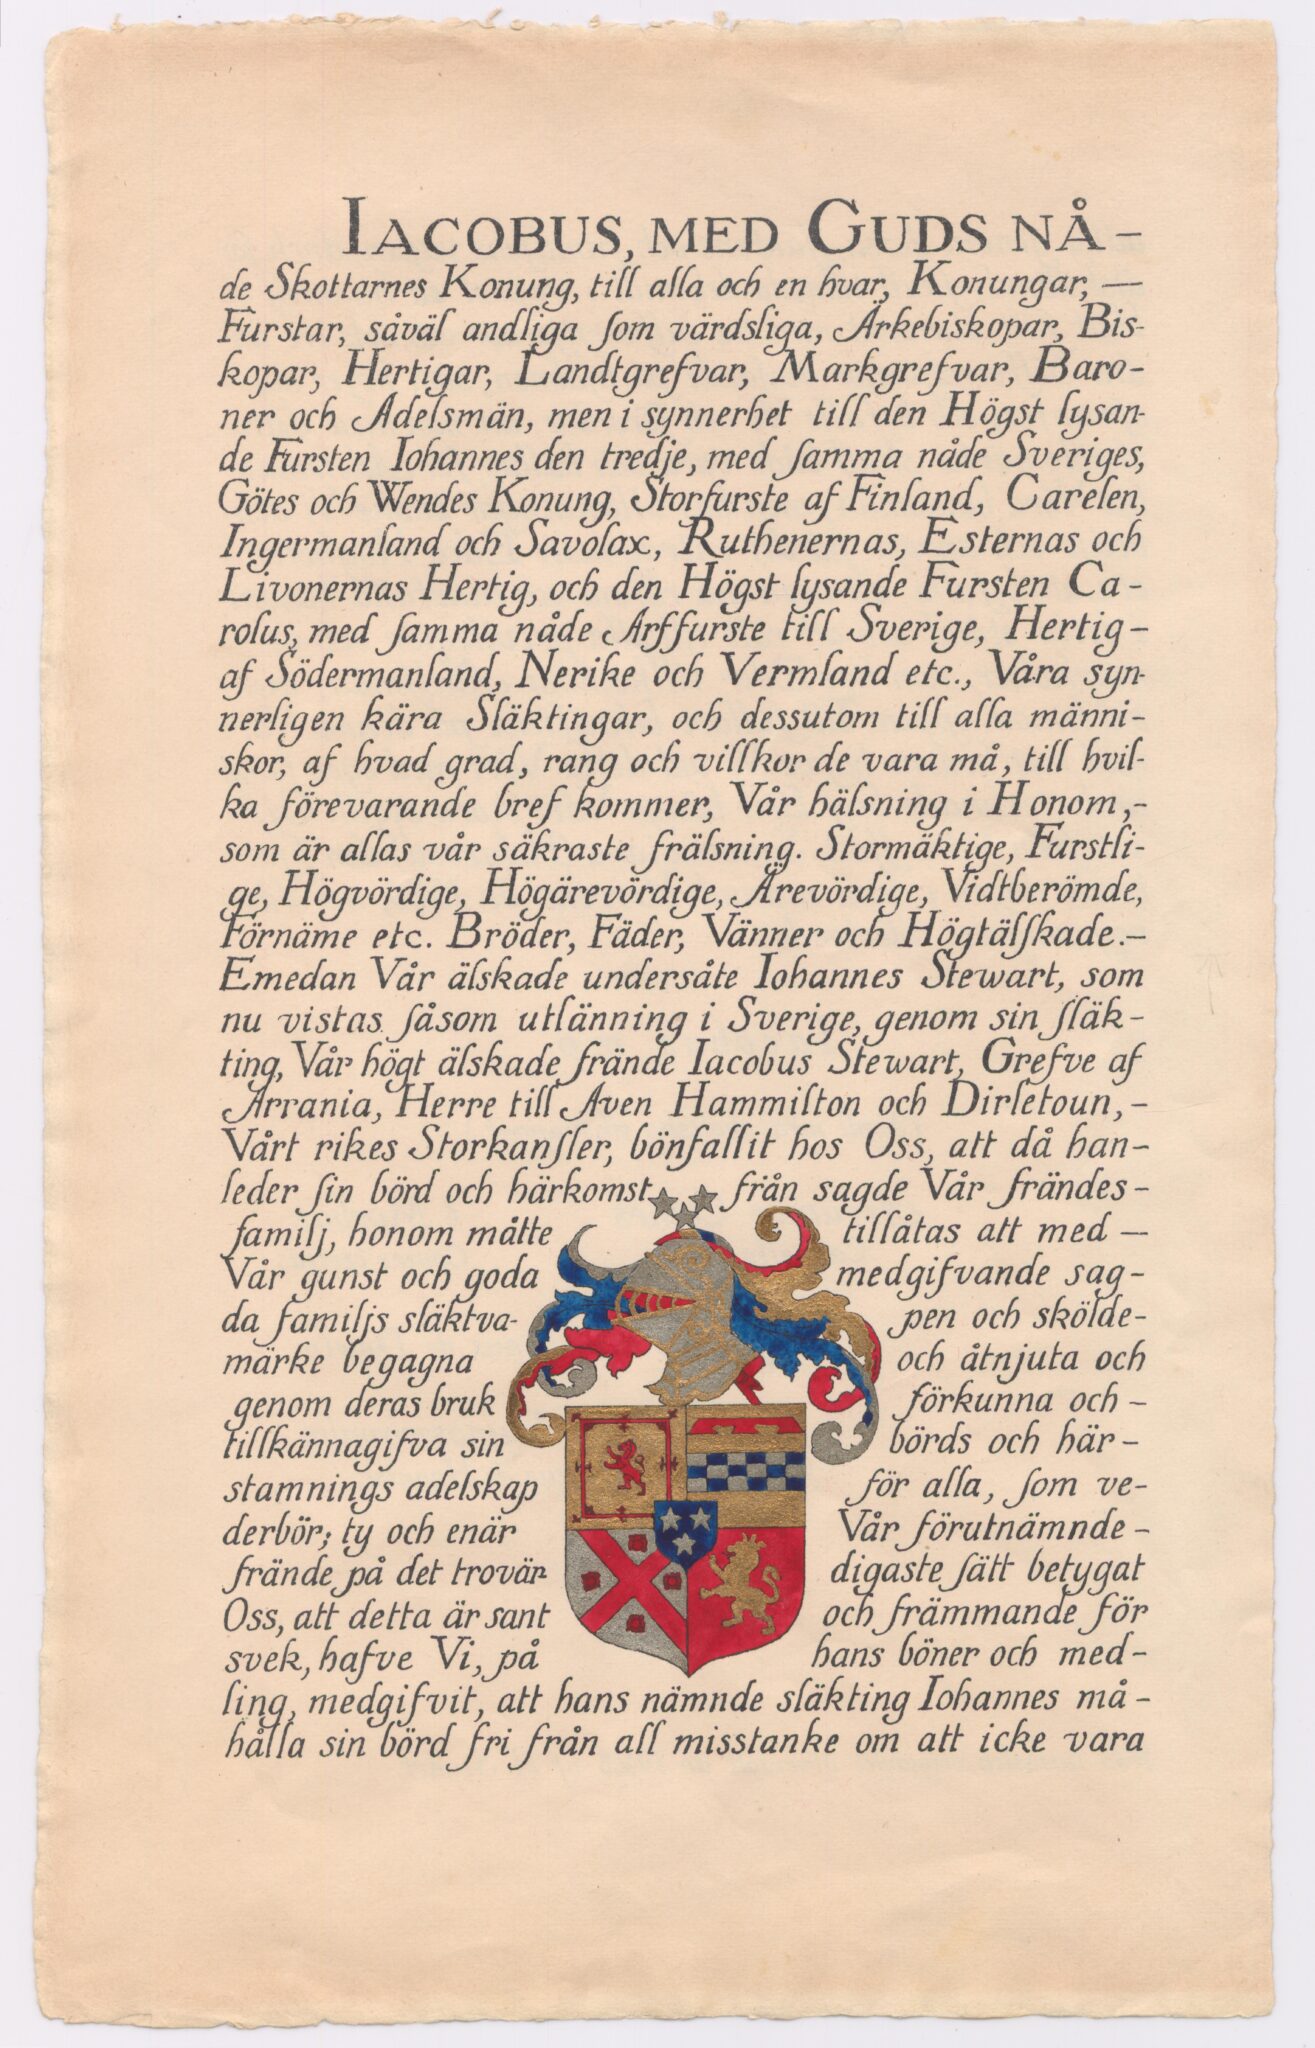 IACOBUS, MED GUDS NÅ-
de Skottarnes Konung, till alla och en hvar, Konungar, —
Furstar, såväl andliga som värdsliga, Ärkebiskopar, Bis-
kopar, Hertigar, Landtgrefvar, Markgrefvar, Baro-
ner och Adelsmän, men i synnerhet till den Högst lysan-
de Fursten Iohannes den tredje, med samma nåde Sveriges,
Götes och Wendes Konung, Storfurste af Finland, Carelen,
Ingermanland och Savolax, Ruthenernas, Esternas och
Livonernas Hertig, och den Högst lysande Fursten Ca-
rolus, med samma nåde Arffurste till Sverige, Hertig-
af Södermanland, Nerike och Vermland etc., Våra syn-
nerligen kära Släktingar, och dessutom till alla männi-
skor, af hvad grad, rang och villkor de vara må, till hvil-
ka förevarande bref kommer, Vår hälsning i Honom,-
som är allas vår säkraste frälsning. Stormäktige, Furstli-
ge, Högvördige, Högärevördige, Ärevördige, Vidtberömde,
Förnäme etc. Bröder, Fäder, Vänner och Högtälskade.-
Emedan Vår älskade undersåte Iohannes Stewart, som
nu vistas såsom utlänning i Sverige, genom sin släk-
ting, Vår högt älskade frände Iacobus Stewart, Grefve af
Arrania, Herre till Aven Hammilton och Dirletoun,-
Vårt rikes Storkansler, bönfallit hos Oss, att då han-
leder sin börd och härkomst från sagde Vår frändes-
familj, honom måtte tillåtas att med —
Vår gunst och goda medgifvande sag-
da familjs släktva- pen och skölde-
märke begagna och åtnjuta och
genom deras bruk förkunna och -
tillkännagifva sin börds och här-
stamnings adelskap för alla, som ve-
derbör; ty och enär Vår förutnämnde-
frände på det trovär- digaste sätt betygat
Oss, att detta är sant och främmande för
svek, hafve Vi, på hans böner och med-
ling, medgifvit, att hans nämnde släkting Iohannes må-
hålla sin börd fri från all misstanke om att icke vara